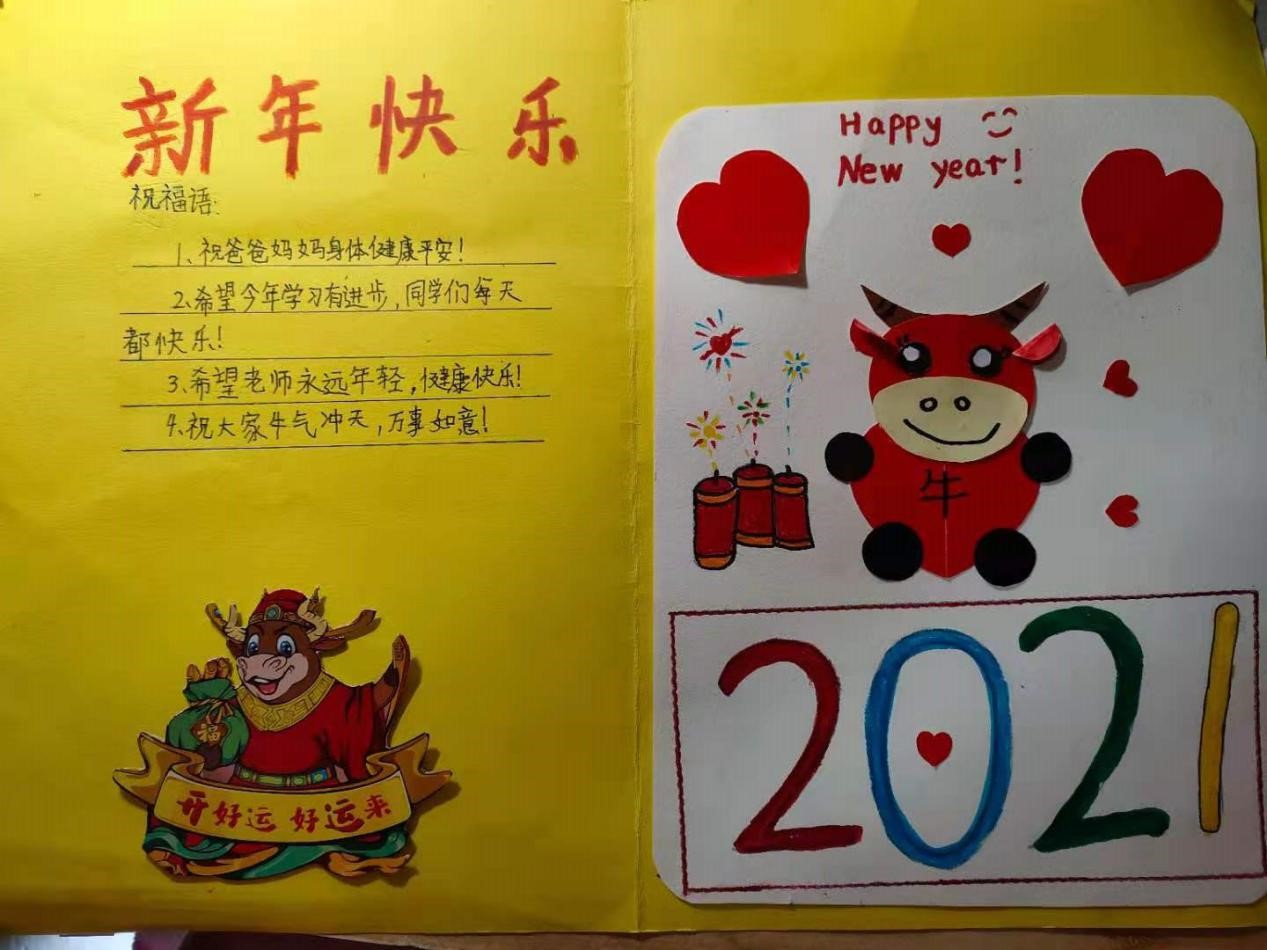 新年快乐
祝福语:
1、祝爸爸妈妈身体健康平安!
2、希望今年学习有进步,同学们每天
都快乐!
3、希望老师永远年轻,健康快乐!
4、祝大家牛气冲天,万事如意!
福
开好运 好运来
Happy
New year!
牛
2021